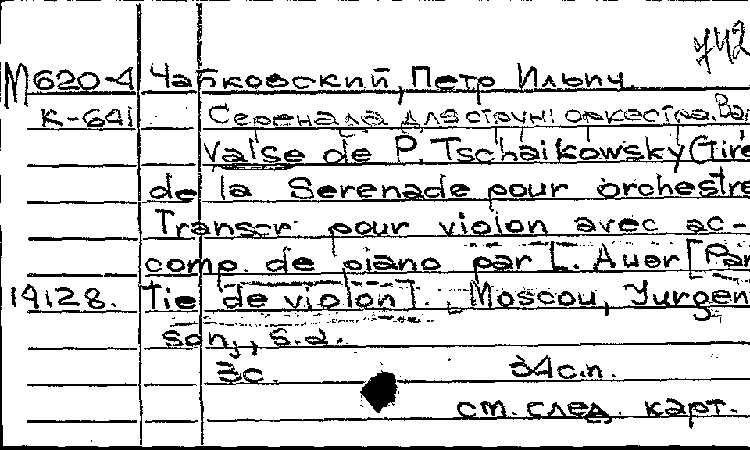 742
М620-4 Чайковский, Петр Ильич
К-641 Серенада для струн. оркестра. Вал
Valse de P. Tschaikowsky (Tiré
de la Serenade pour orchestre
Transcr pour violon avec ac-
comp. de piano par L. Auer [Par
19128. tie de violon]. Moscou, Jurgen
son, s.d.
3с. 34 с.п.
см. след. карт.